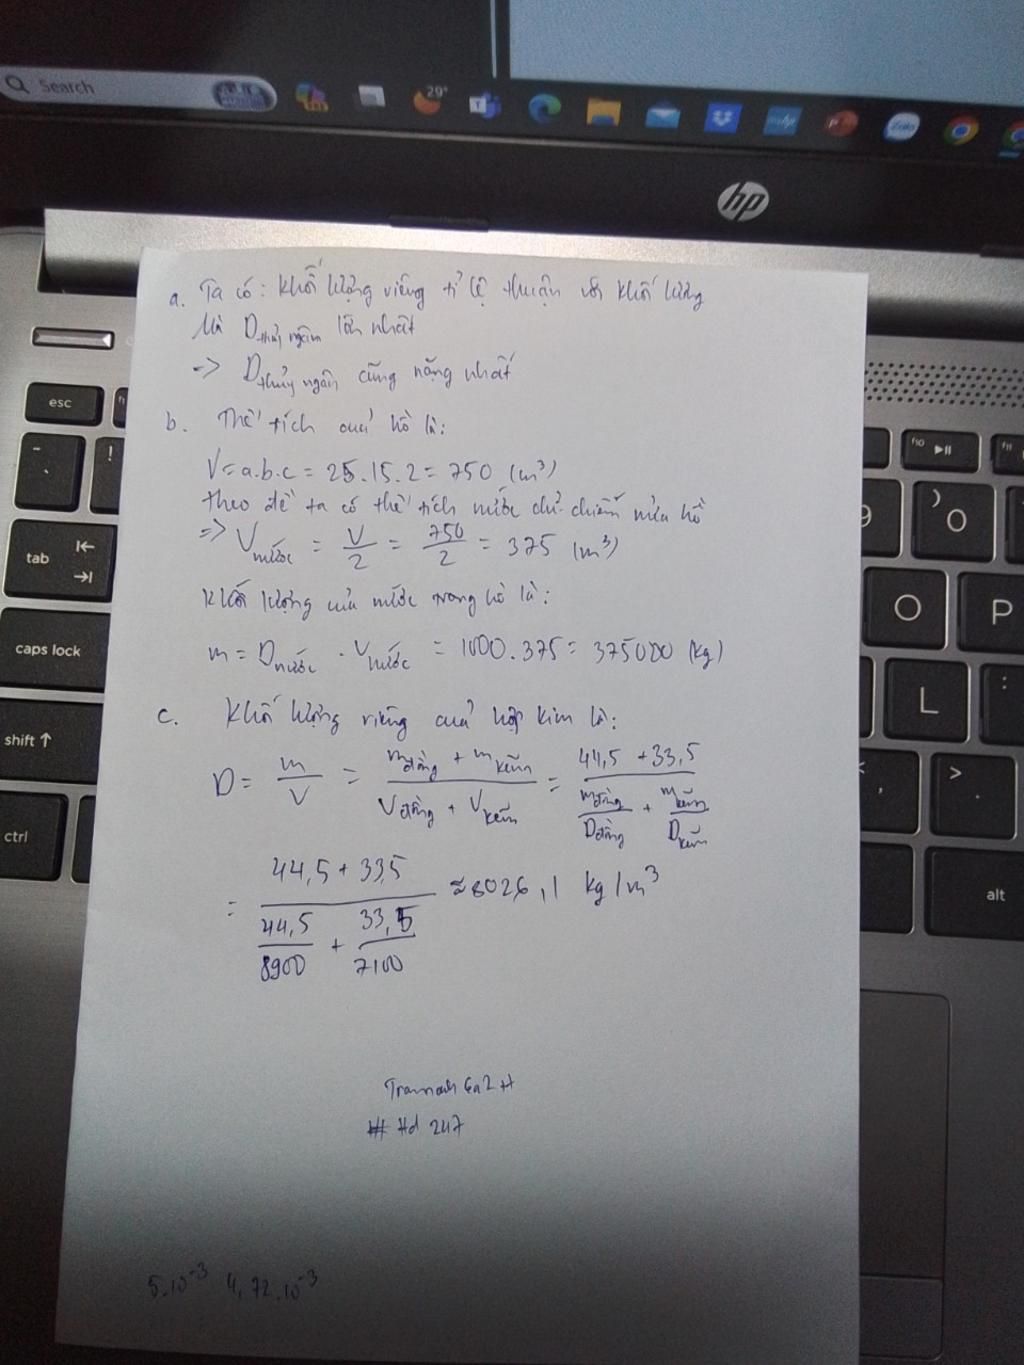 Search
29°
hp
esc
tab
caps lock
shift
ctrl
O
P
L
alt
a. Ta có: Khối lượng riêng tỉ lệ thuận với khối lượng
Mà D thủy ngân lớn nhất
=> D thủy ngân cũng nặng nhất
b. Thể tích của hồ là:
V = a.b.c = 25.15.2 = 750 (m³)
theo đề ta có thể tích nước chỉ chiếm nửa hồ
=> V nước = V/2 = 750/2 = 375 (m³)
Khối lượng của nước trong hồ là:
m = D nước . V nước = 1000.375 = 375000 (kg)
c. Khối lượng riêng của hợp kim là:
D = m/V = (m đồng + m kẽm)/(V đồng + V kẽm) = (44,5 + 33,5)/(m đồng/D đồng + m kẽm/D kẽm)
= (44,5 + 33,5)/(44,5/8900 + 33,5/7100) ≈ 8026,1 kg/m³
Hd 247
5.10⁻³ 4,72.10⁻³